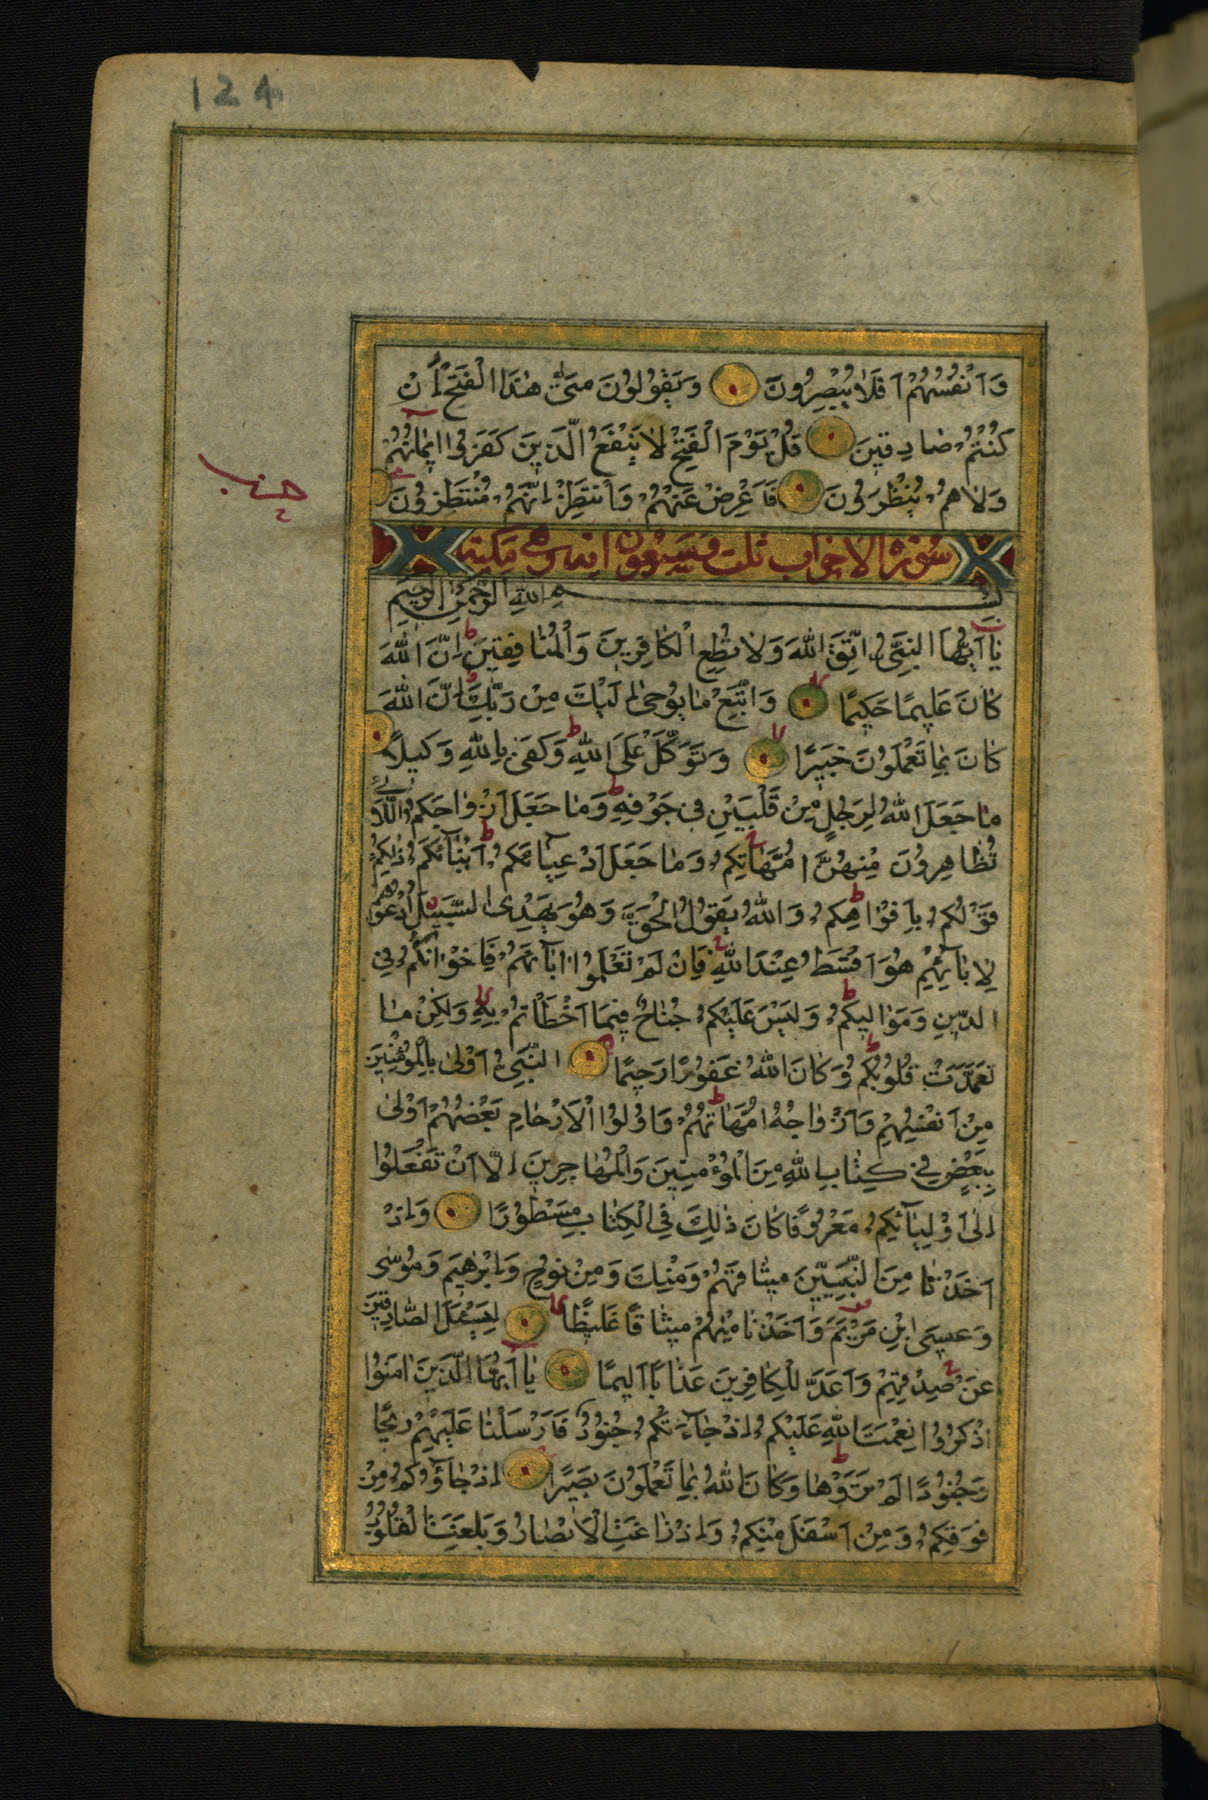 124
وَاَنْفُسُهُمْ اَفَلَا يُبْصِرُونَ وَيَقُولُونَ مَتٰى هٰذَا الْفَتْحُ اِنْ
كُنْتُمْ صَادِقِينَ قُلْ يَوْمَ الْفَتْحِ لَا يَنْفَعُ الَّذِينَ كَفَرُوا اِيمَانُهُمْ
وَلَا هُمْ يُنْظَرُونَ فَاَعْرِضْ عَنْهُمْ وَانْتَظِرْ اِنَّهُمْ مُنْتَظِرُونَ
حزب
سُورَة الاحزاب ثلث وسبعون اية وهي مكية
بِسْمِ اللّٰهِ الرَّحْمٰنِ الرَّحِيمِ
يَا اَيُّهَا النَّبِىُّ اتَّقِ اللّٰهَ وَلَا تُطِعِ الْكَافِرِينَ وَالْمُنَافِقِينَ اِنَّ اللّٰهَ
كَانَ عَلِيمًا حَكِيمًا وَاتَّبِعْ مَا يُوحٰى اِلَيْكَ مِنْ رَبِّكَ اِنَّ اللّٰهَ
كَانَ بِمَا تَعْمَلُونَ خَبِيرًا وَتَوَكَّلْ عَلَى اللّٰهِ وَكَفٰى بِاللّٰهِ وَكِيلًا
مَا جَعَلَ اللّٰهُ لِرَجُلٍ مِنْ قَلْبَيْنِ فِى جَوْفِهِ وَمَا جَعَلَ اَزْوَاجَكُمُ اللَّائِى
تُظَاهِرُونَ مِنْهُنَّ اُمَّهَاتِكُمْ وَمَا جَعَلَ اَدْعِيَاءَكُمْ اَبْنَاءَكُمْ ذٰلِكُمْ
قَوْلُكُمْ بِاَفْوَاهِكُمْ وَاللّٰهُ يَقُولُ الْحَقَّ وَهُوَ يَهْدِى السَّبِيلَ اُدْعُوهُمْ
لِاٰبَائِهِمْ هُوَ اَقْسَطُ عِنْدَ اللّٰهِ فَاِنْ لَمْ تَعْلَمُوا اٰبَاءَهُمْ فَاِخْوَانُكُمْ فِى
الدِّينِ وَمَوَالِيكُمْ وَلَيْسَ عَلَيْكُمْ جُنَاحٌ فِيمَا اَخْطَأْتُمْ بِهِ وَلٰكِنْ مَا
تَعَمَّدَتْ قُلُوبُكُمْ وَكَانَ اللّٰهُ غَفُورًا رَحِيمًا النَّبِىُّ اَوْلٰى بِالْمُؤْمِنِينَ
مِنْ اَنْفُسِهِمْ وَاَزْوَاجُهُ اُمَّهَاتُهُمْ وَاُولُوا الْاَرْحَامِ بَعْضُهُمْ اَوْلٰى
بِبَعْضٍ فِى كِتَابِ اللّٰهِ مِنَ الْمُؤْمِنِينَ وَالْمُهَاجِرِينَ اِلَّا اَنْ تَفْعَلُوا
اِلٰى اَوْلِيَائِكُمْ مَعْرُوفًا كَانَ ذٰلِكَ فِى الْكِتَابِ مَسْطُورًا وَاِذْ
اَخَذْنَا مِنَ النَّبِيِّينَ مِيثَاقَهُمْ وَمِنْكَ وَمِنْ نُوحٍ وَاِبْرٰهِيمَ وَمُوسٰى
وَعِيسَى ابْنِ مَرْيَمَ وَاَخَذْنَا مِنْهُمْ مِيثَاقًا غَلِيظًا لِيَسْئَلَ الصَّادِقِينَ
عَنْ صِدْقِهِمْ وَاَعَدَّ لِلْكَافِرِينَ عَذَابًا اَلِيمًا يَا اَيُّهَا الَّذِينَ اٰمَنُوا
اذْكُرُوا نِعْمَتَ اللّٰهِ عَلَيْكُمْ اِذْ جَاءَتْكُمْ جُنُودٌ فَاَرْسَلْنَا عَلَيْهِمْ رِيحًا
وَجُنُودًا لَمْ تَرَوْهَا وَكَانَ اللّٰهُ بِمَا تَعْمَلُونَ بَصِيرًا اِذْ جَاؤُكُمْ مِنْ
فَوْقِكُمْ وَمِنْ اَسْفَلَ مِنْكُمْ وَاِذْ زَاغَتِ الْاَبْصَارُ وَبَلَغَتِ الْقُلُوبُ